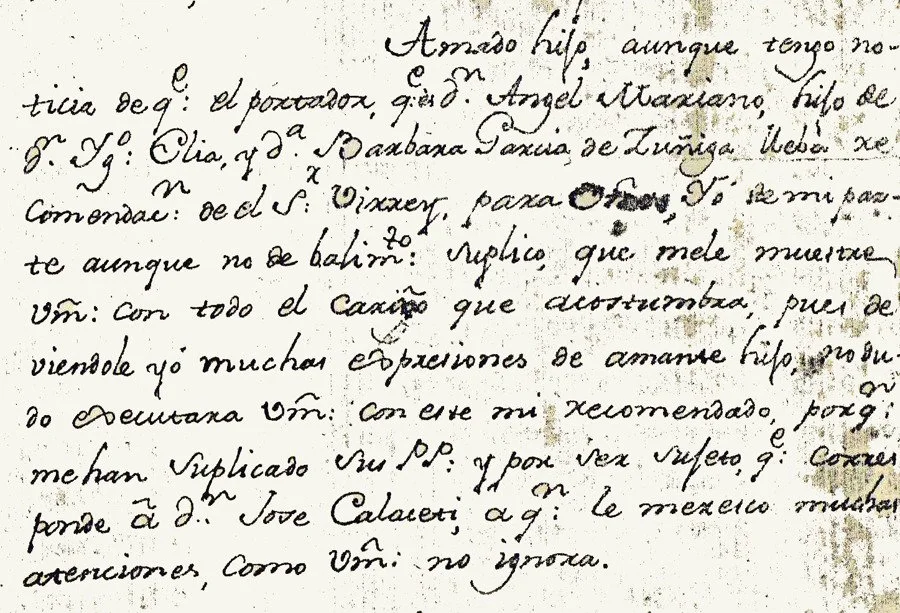 Amado hijo, aunque tengo no-
ticia de q.e: el portador, q.e es d.n Angel Mariano, hijo de
d.n Yg.o: Elia, y d.a Barbara Garcia de Zuñiga llebà re
comendac.n: de el S.r: Virrey, para Yó de mi par-
te aunque no de balim.to: suplico, que mele muestre
Vm̃: con todo el cariño que acostumbra, pues de
viendole yó muchas expresiones de amante hijo, no du-
do executara Vm̃: con este mi recomendado, porq.n:
me han suplicado sus PP: y por ser sujeto, q.e: corres
ponde ã d.n Jose Calaceti, â q.n: le meresco muchas
atenciones, como Vm̃: no ignora.